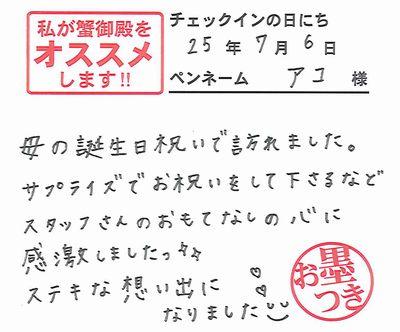 私が蟹御殿を
オススメ
します!!
チェックインの日にち
25年7月6日
ペンネーム アユ 様
母の誕生日祝いで訪れました。
サプライズでお祝いをして下さるなど
スタッフさんのおもてなしの心に
感激しましたっ☆☆
ステキな想い出に
なりました
お墨つき